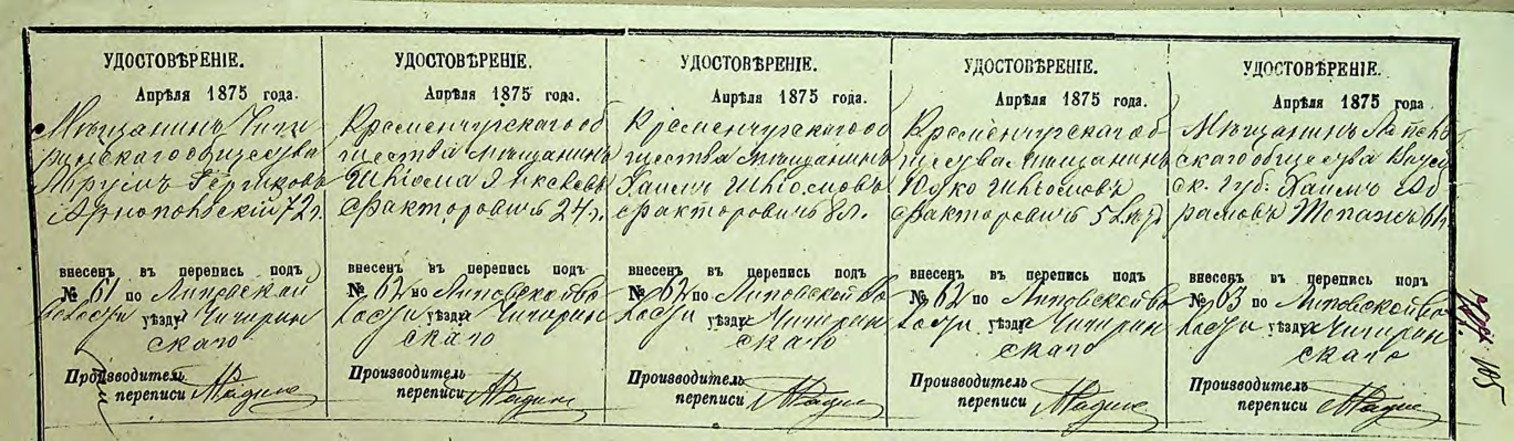 УДОСТОВѢРЕНІЕ.
Апрѣля 1875 года.
Мѣщанинъ Чиги
ринскаго общества
Сруль
72 г.
внесенъ въ перепись подъ
№ 61 по Липовской
волости уѣзду Чигирин
скаго
Производитель
переписи
УДОСТОВѢРЕНІЕ.
Апрѣля 1875 года.
Кременчугскаго об
щества мѣщанинъ
Шліома Янкелевъ
Факторовичъ 24 г.
внесенъ въ перепись подъ
№ 62 по Липовской во
лости уѣзду Чигирин
скаго
Производитель
переписи
УДОСТОВѢРЕНІЕ.
Апрѣля 1875 года.
Кременчугскаго об
щества мѣщанинъ
Хаимъ Шліомовъ
Факторовичъ 8 л.
внесенъ въ перепись подъ
№ 62 по Липовской во
лости уѣзду Чигирин
скаго
Производитель
переписи
УДОСТОВѢРЕНІЕ.
Апрѣля 1875 года.
Кременчугскаго об
щества мѣщанинъ
Юдко Шліомовъ
Факторовичъ 5 лѣтъ
внесенъ въ перепись подъ
№ 62 по Липовской во
лости уѣзду Чигирин
скаго
Производитель
переписи
УДОСТОВѢРЕНІЕ.
Апрѣля 1875 года
Мѣщанинъ
скаго общества
ск. губ. Хаимъ Аб
рамовъ
внесенъ въ перепись подъ
№ 63 по Липовской во
лости уѣзду Чигирин
скаго
Производитель
переписи
105